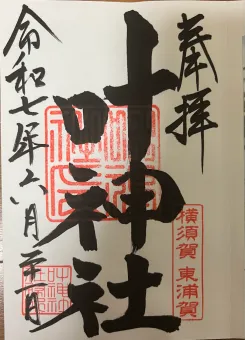 奉拝
横須賀 東浦賀
叶神社
令和七年六月二十一日